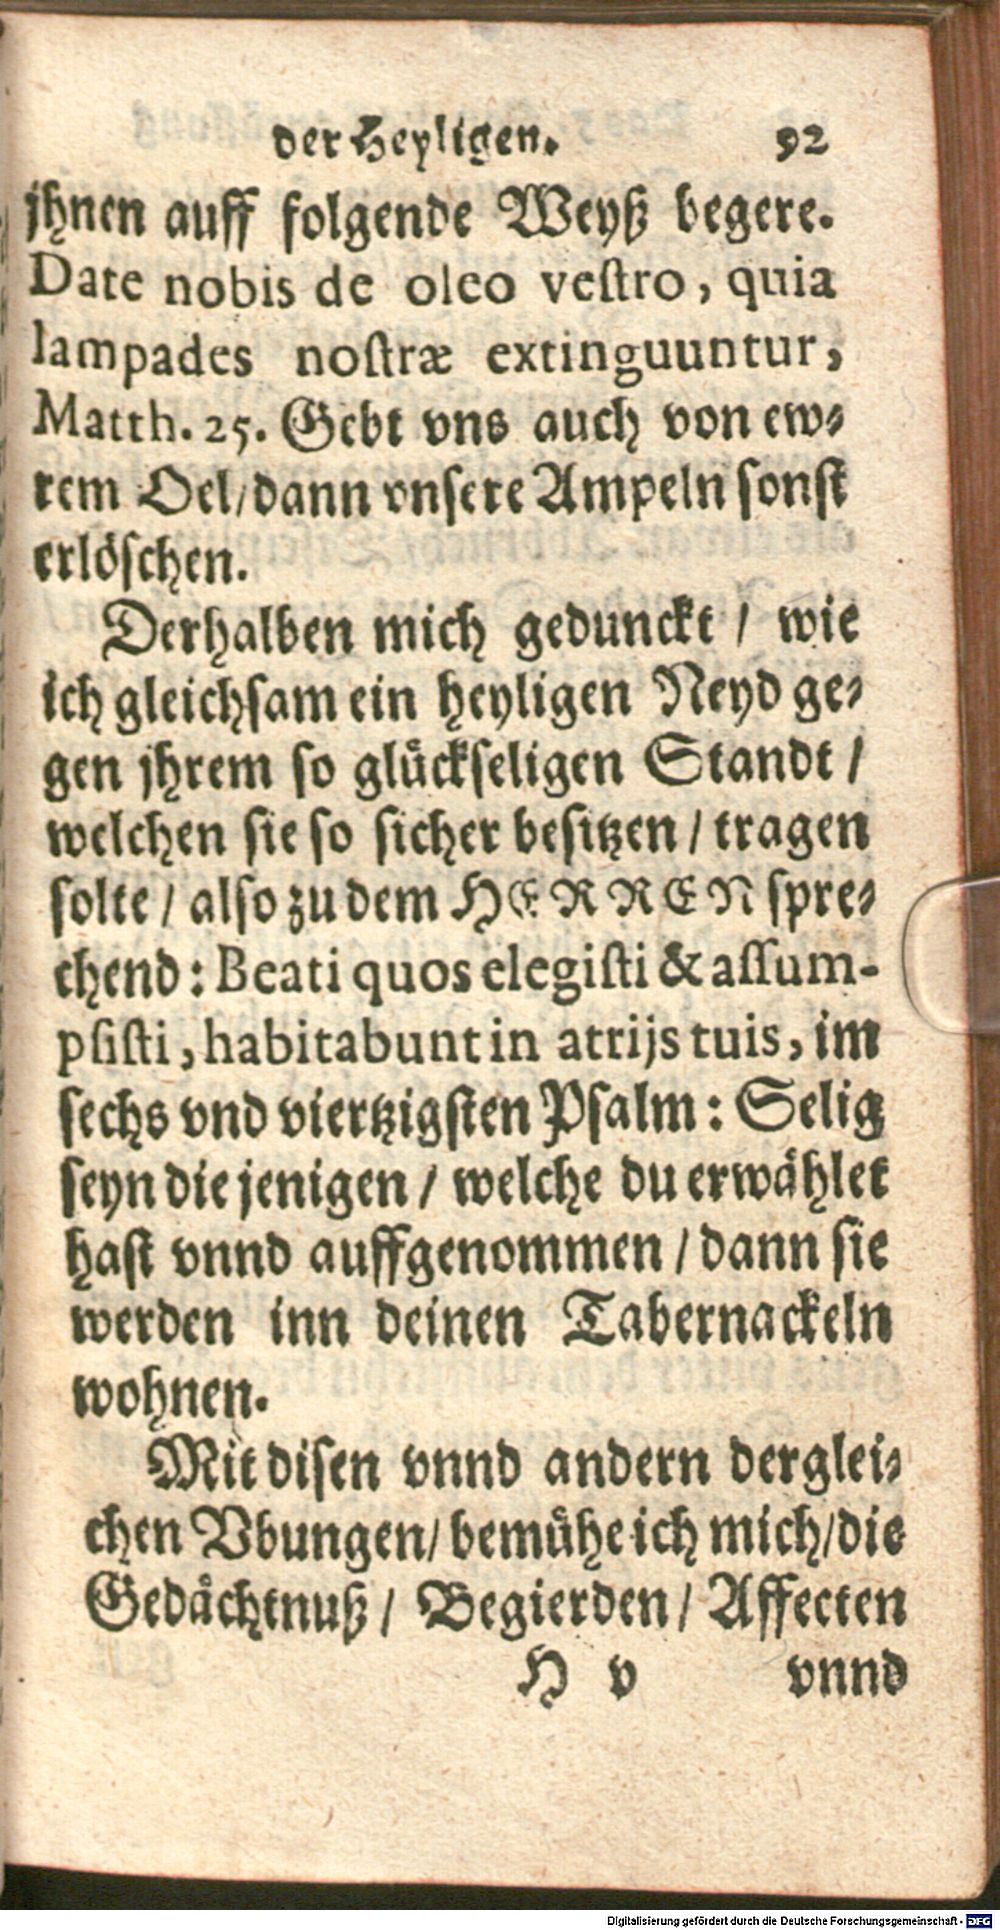 der Heyligen. 92
jhnen auff folgende Weyß begere.
Date nobis de oleo vestro, quia
lampades nostræ extinguuntur,
Matth. 25. Gebt vns auch von ew-
rem Oel/dann vnsere Ampeln sonst
erlöschen.
Derhalben mich geduncket / wie
ich gleichsam ein heyligen Neyd ge-
gen jhrem so glückseligen Standt /
welchen sie so sicher besitzen / tragen
solte / also zu dem HERREN spre-
chend: Beati quos elegisti & assum-
psisti, habitabunt in atrijs tuis, im
sechs vnd viertzigsten Psalm: Selig
seyn die jenigen / welche du erwählet
hast vnnd auffgenommen / dann sie
werden inn deinen Tabernackeln
wohnen.
Mit disen vnnd andern derglei-
chen Vbungen/ bemühe ich mich/die
Gedächtnuß / Begierden / Affecten
H v vnnd
Digitalisierung gefördert durch die Deutsche Forschungsgemeinschaft - DFG